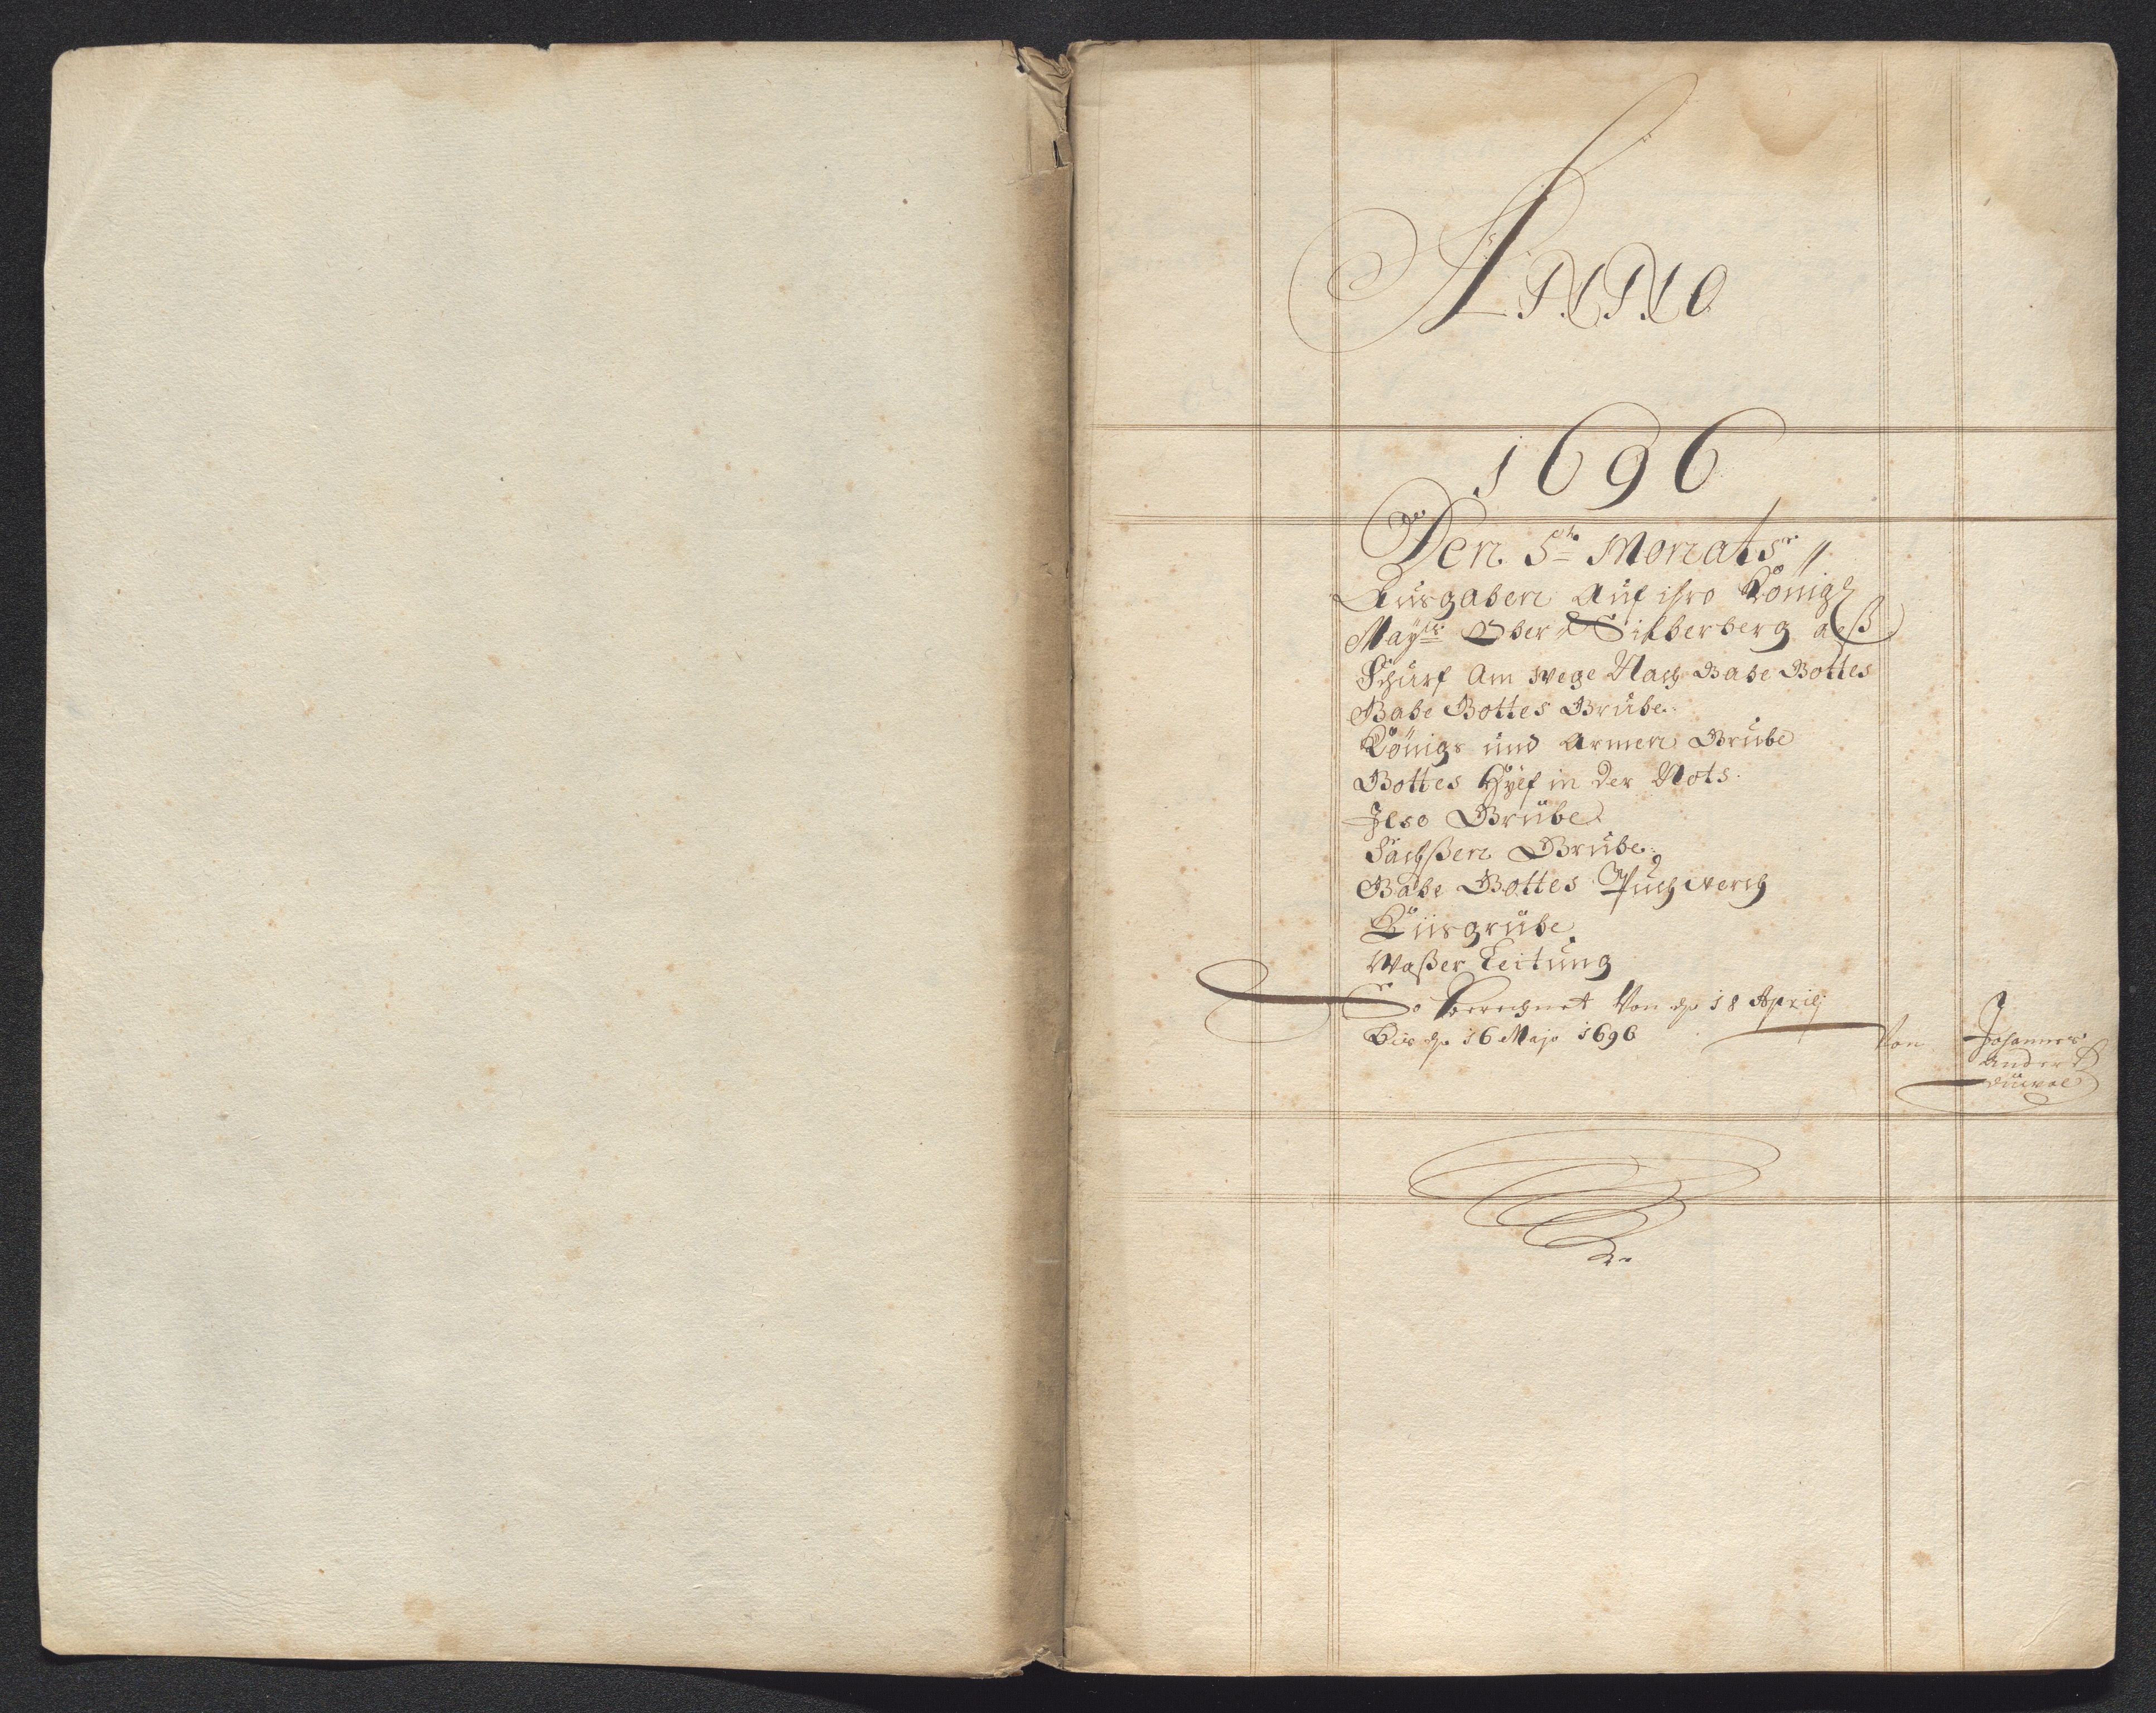 ANNO
1696
Den 5te Monats
Ausgaben Auf ihro Königl
Maytt: Ober Silberberg alß
Schürf Am wege Nach Gabe Gottes
Gabe Gottes Grube.
Königs und Armen Grube
Gottes Hylf in der Noth.
Grube
Sachßen Grube.
Gabe Gottes Puchwerch
Grube
Waßer Leitung
So berechnet Von dn 18 Aprilj
Bis dn 16 Majo 1696
Von Johannes
Anders